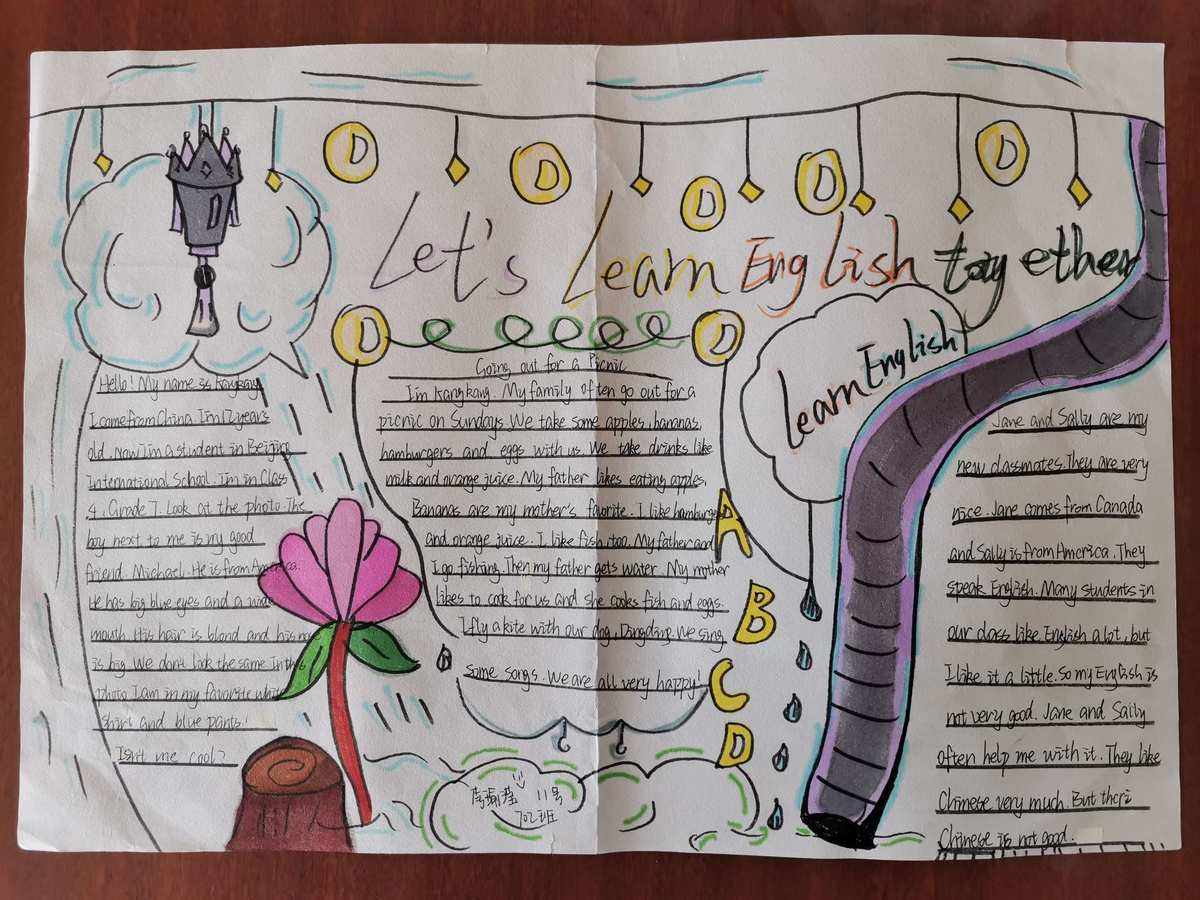 Let's Learn English together
Learn English
Hello! My name is Kangkang
I come from China. I'm 12 years
old. Now I'm a student in Beijing
International School. I'm in Class
4, Grade 7. Look at the photo. The
boy next to me is my good
friend, Michael. He is from America.
He has big blue eyes and a wide
mouth. His hair is blond and his no
is big. We don't look the same. In this
photo I am in my favorite white
shirt and blue pants.
Isn't me cool?
Going out for a Picnic
I'm Kangkang. My family often go out for a
picnic on Sundays. We take some apples, bananas,
hamburgers and eggs with us. We take drinks like
milk and orange juice. My father likes eating apples,
Bananas are my mother's favorite. I like hamburgers
and orange juice. I like fish, too. My father and
I go fishing. Then my father gets water. My mother
likes to cook for us and she cooks fish and eggs.
I fly a kite with our dog, Dingding. We sing
some songs. We are all very happy!
A
B
C
D
Jane and Sally are my
new classmates. They are very
nice. Jane comes from Canada
and Sally is from America. They
speak English. Many students in
our class like English a lot, but
I like it a little. So my English is
not very good. Jane and Sally
often help me with it. They like
Chinese very much. But their
Chinese is not good.
11号
702班